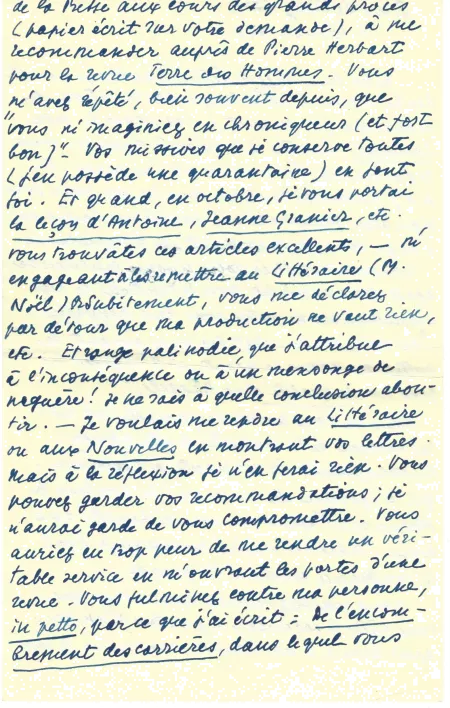 de la Presse aux cours des grands procès
(papier écrit sur votre demande), à me
recommander auprès de Pierre Herbart
pour la revue Terre des Hommes. Vous
m'avez répété, bien souvent depuis, que
"vous m'imaginiez en chroniqueur (et fort
bon)"- Vos missives que je conserve toutes
(j'en possède une quarantaine) en font
foi. Et quand, en octobre, je vous portai
la leçon d'Antoine, Jeanne Granier, etc.
vous trouvâtes ces articles excellents, — m'
engageant à les remettre au Littéraire (M.
Noël) subitement, vous me déclarez
par détour que ma production ne vaut rien,
etc. Etrange palinodie, que j'attribue
à l'inconséquence ou à un mensonge de
naguère! Je ne sais à quelle conclusion abou-
tir. — Je voulais me rendre au Littéraire
ou aux Nouvelles en montrant vos lettres.
mais à la réflexion je n'en ferai rien. Vous
pouvez garder vos recommandations; je
n'aurai garde de vous compromettre. Vous
auriez eu trop peur de me rendre un véri-
table service en m'ouvrant les portes d'une
revue. Vous fulminez contre ma personne,
in petto, parce que j'ai écrit: De l'encom-
brement des carrières, dans lequel vous